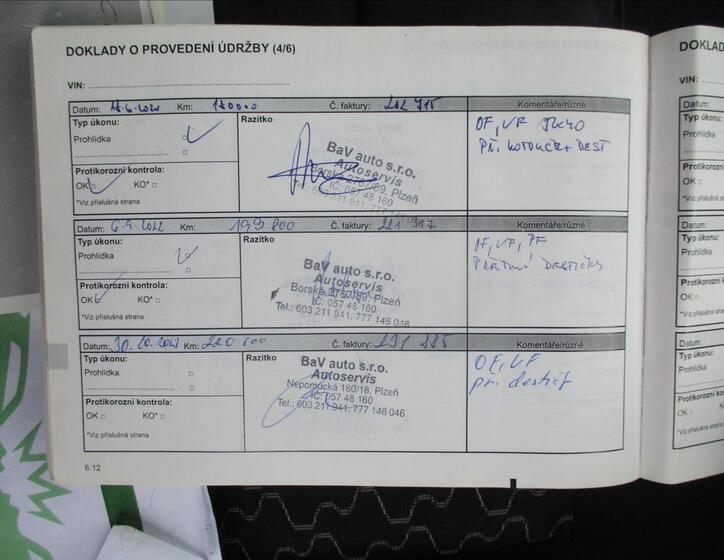 DOKLADY O PROVEDENÍ ÚDRŽBY (4/6)
VIN:
Datum: Km: 180000 Č. faktury: Komentáře/různé
Typ úkonu:
Prohlídka
Protikorozní kontrola:
OK KO*
*Viz příslušná strana
Razítko
BaV auto s.r.o.
Autoservis
Borská 2767/89, Plzeň
IČ: 057 48 160
Tel.: 603 211 941, 777 146 046
OF, VF
Datum: 6.9.2022 Km: 199 800 Č. faktury: Komentáře/různé
Typ úkonu:
Prohlídka
Protikorozní kontrola:
OK KO*
*Viz příslušná strana
Razítko
BaV auto s.r.o.
Autoservis
Borská, Plzeň
IČ: 057 48 160
Tel.: 603 211 941, 777 146 046
OF, VF, PF
PŘEDNÍ DESTIČKY
Datum: Km: 220 Č. faktury: Komentáře/různé
Typ úkonu:
Prohlídka
Protikorozní kontrola:
OK KO*
*Viz příslušná strana
Razítko
BaV auto s.r.o.
Autoservis
Nepomucká 180/18, Plzeň
IČ: 057 48 160
Tel.: 603 211 941, 777 146 046
OF, VF
př. destič
6.12
DOKLAD
VIN:
Datum:
Typ úkonu:
Prohlídka
Protikorozní
OK
*Viz příslušná
Datum:
Typ úkonu:
Prohlídka
Protikorozní
OK
*Viz příslušná
Datum:
Typ úkonu:
Prohlídka
Protikorozní
OK
*Viz příslušná